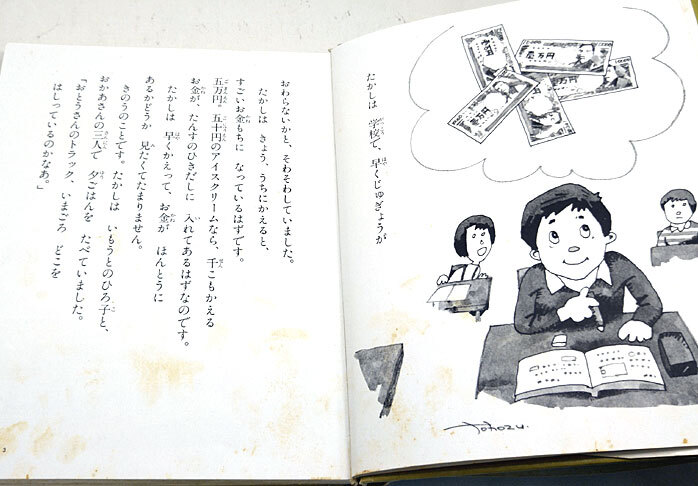 壱万円
たかしは 学校で、早くじゅぎょうが
おわらないかと、そわそわしていました。
たかしは きょう、うちにかえると、
すごいお金もちに なっているはずです。
五万円。五十円のアイスクリームなら、千こもかえる
お金が、たんすのひきだしに 入れてあるはずなのです。
たかしは 早くかえって、お金が ほんとうに
あるかどうか 見たくてたまりません。
きのうのことです。たかしは いもうとのひろ子と、
おかあさんの三人で 夕ごはんを たべていました。
「おとうさんのトラック、いまごろ どこを
はしっているのかなあ。」
3